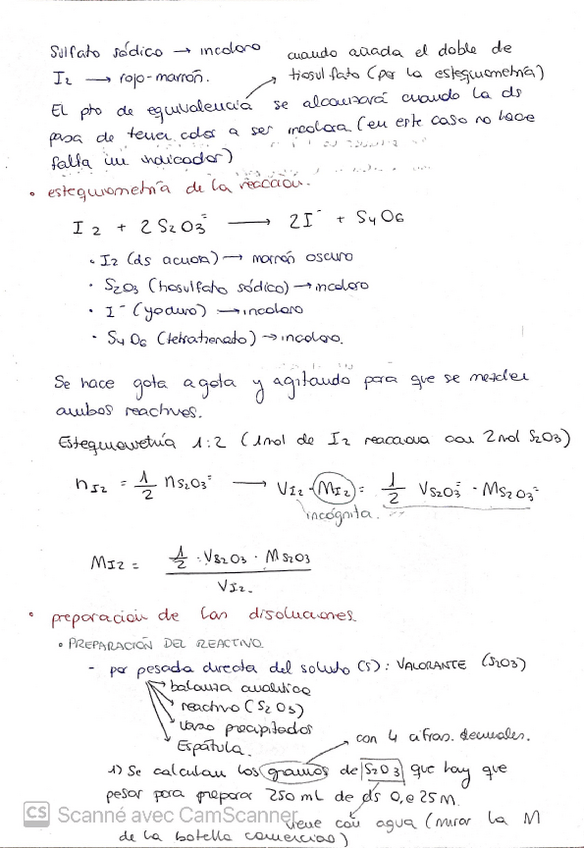 Sulfato sódico → incoloro
I2 → rojo-marrón.
cuando añada el doble de
tiosulfato (por la estequiometría)
El pto de equivalencia se alcanzará cuando la ds
pasa de tener color a ser incolora (en este caso no hace
falta un indicador)
• estequiometría de la reacción.
I2 + 2 S2O3= → 2I- + S4O6
• I2 (ds acuosa) → marrón oscuro
• S2O3 (tiosulfato sódico) → incoloro
• I- (yoduro) → incoloro
• S4O6 (tetrationato) → incoloro.
Se hace gota a gota y agitando para que se mezclen
ambos reactivos.
Estequiometría 1:2 (1mol de I2 reacciona con 2mol S2O3)
nI2 = 1/2 nS2O3= → VI2 · MI2 = 1/2 VS2O3= · MS2O3=
incógnita.
MI2 = 1/2 · VS2O3 · MS2O3
VI2.
• preparación de las disoluciones.
• PREPARACIÓN DEL REACTIVO
- por pesada directa del soluto (s): VALORANTE (S2O3)
balanza analítica
reactivo (S2O3)
vaso precipitados
Espátula.
con 4 cifras decimales.
1) Se calculan los gramos de S2O3 que hay que
pesar para preparar 250 mL de ds 0,025M.
viene con agua (mirar la M
de la botella comercial)
CS Scanné avec CamScanner